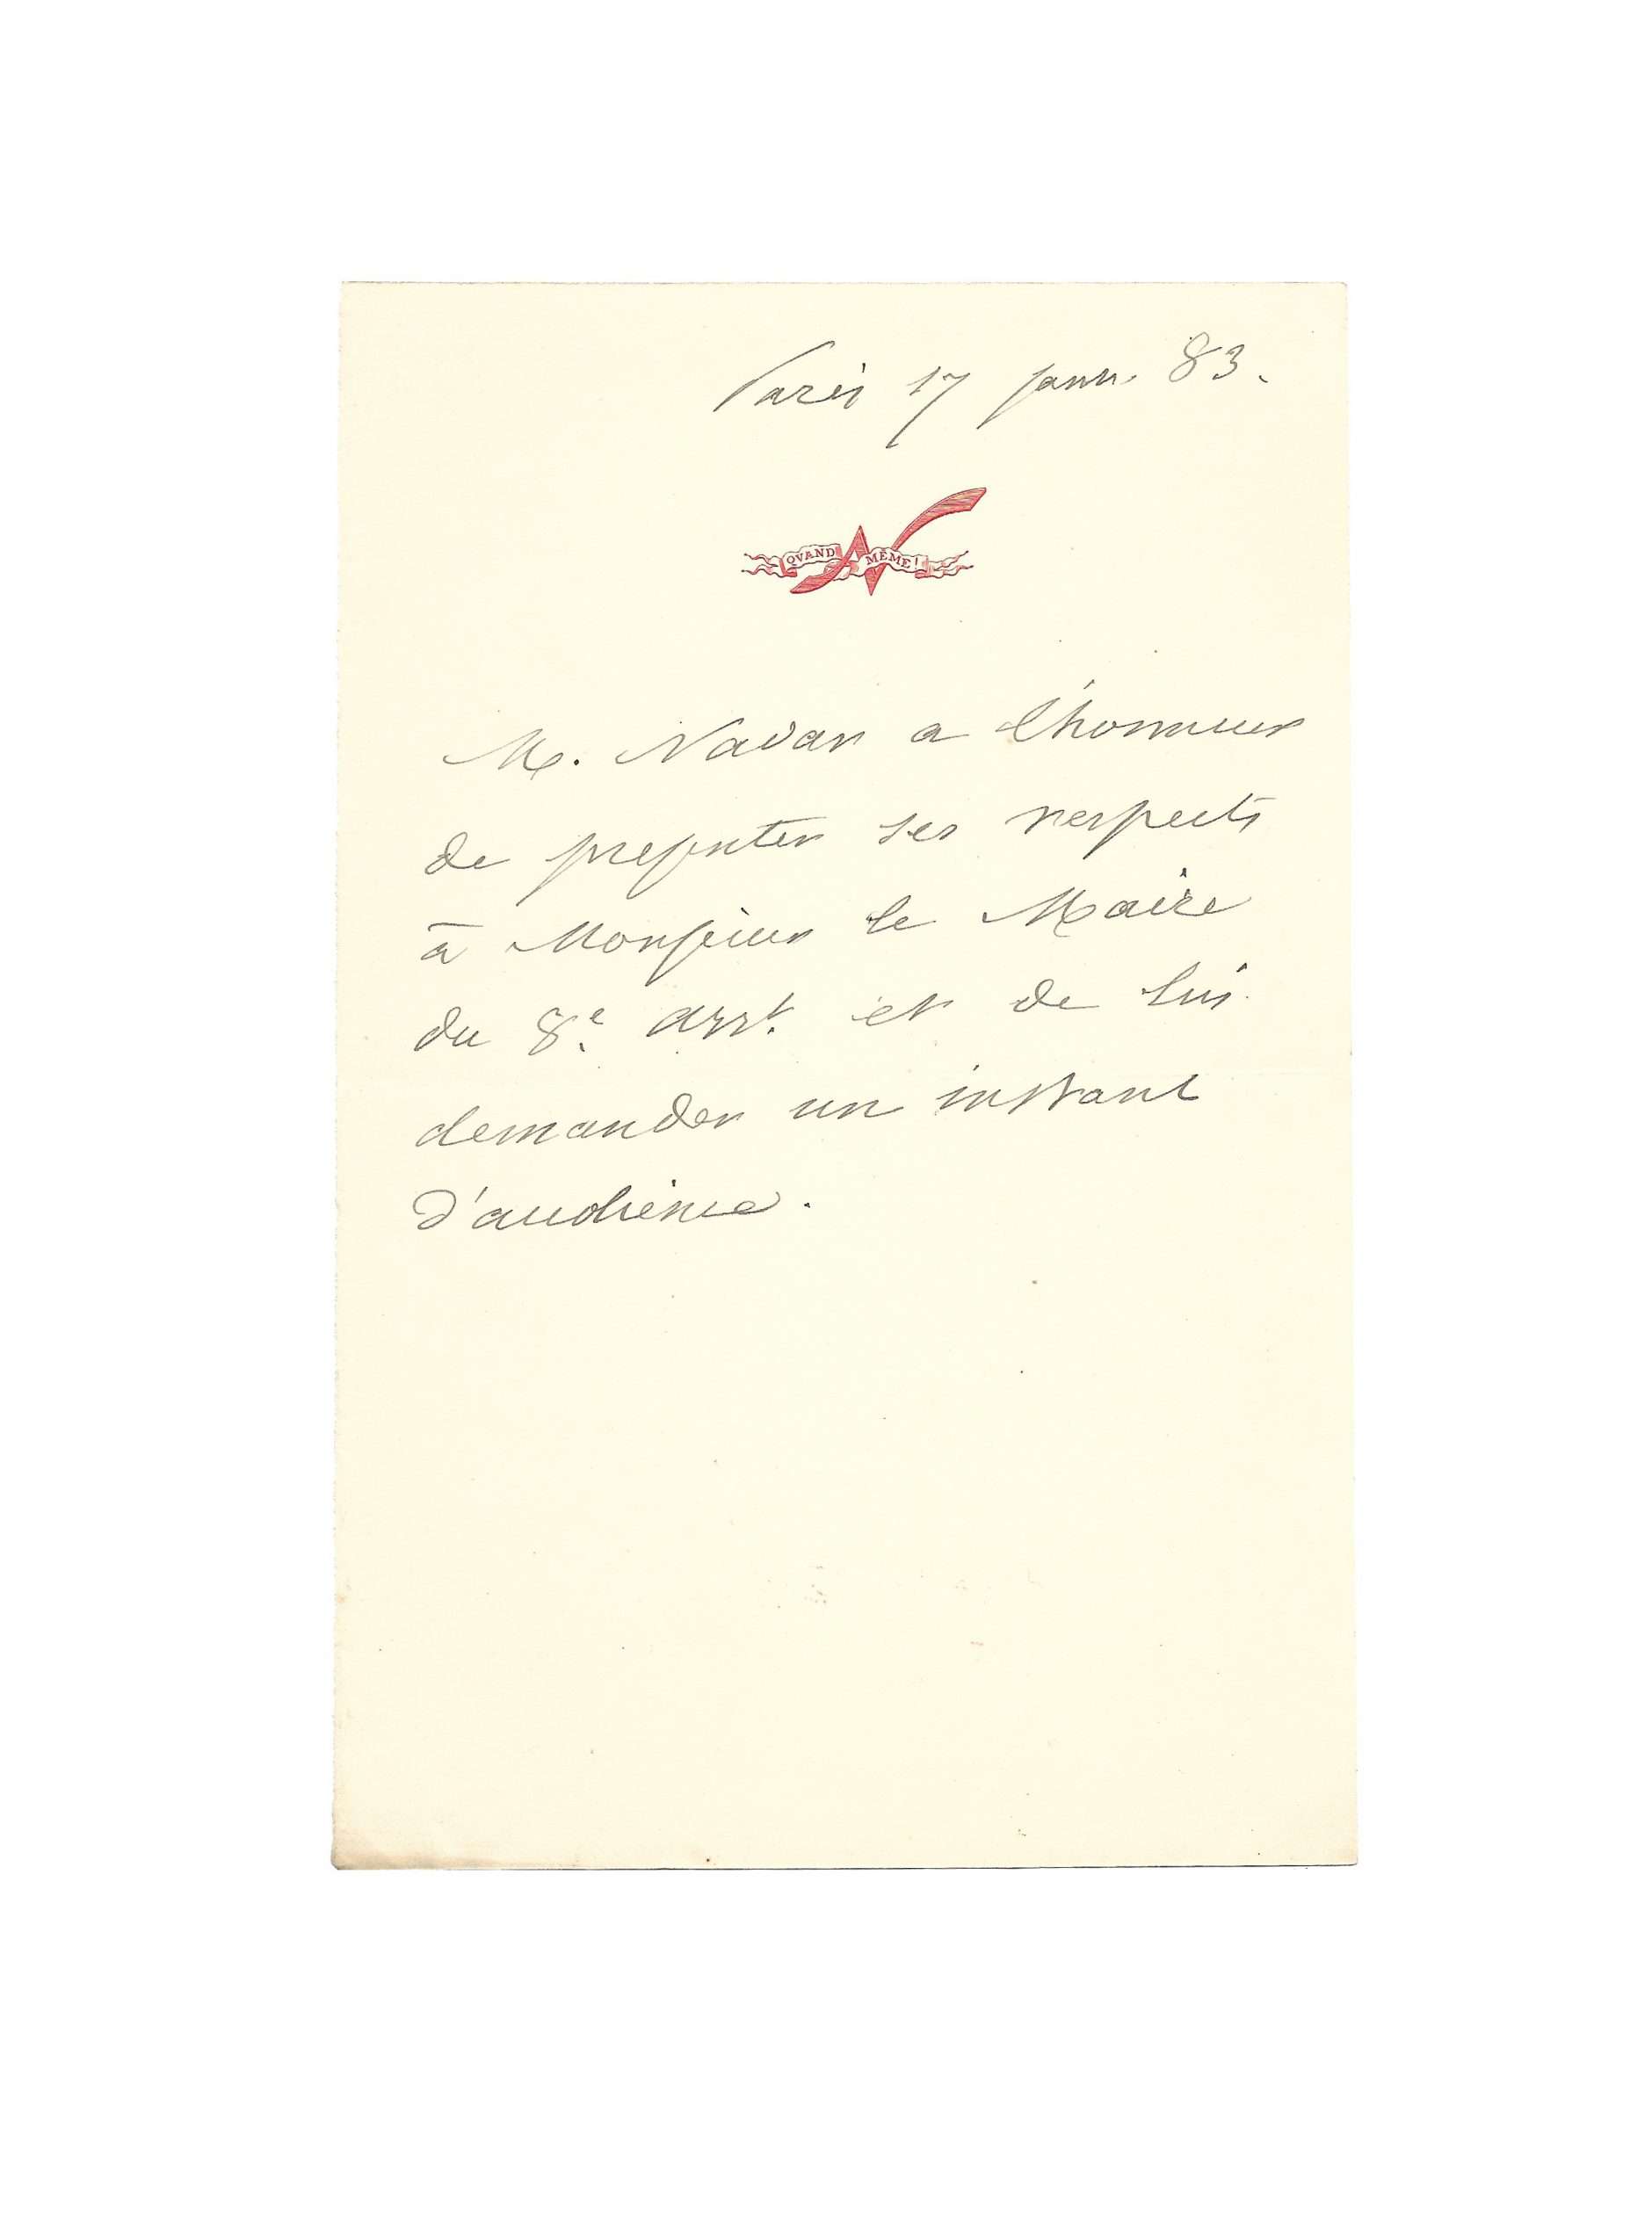 Paris 17 janv. 83.
QVAND N MÊME !
M. Nadar a l'honneur
de presenter ses respects
à Monsieur le Maire
du 8e arrt. et de lui
demander un instant
d'audience.